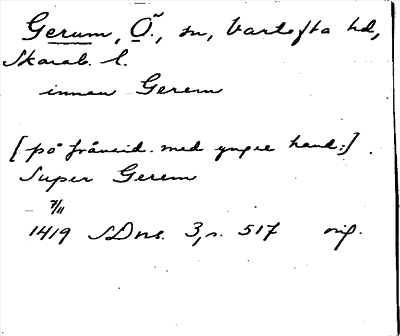 Gerum, Ö., sn, Vartofta hd,
Skarab. l.
innan Gerem
[på frånsid. med yngre hand:].
Super Gerem
7/11
1419 SDns. 3, s. 517 orig.